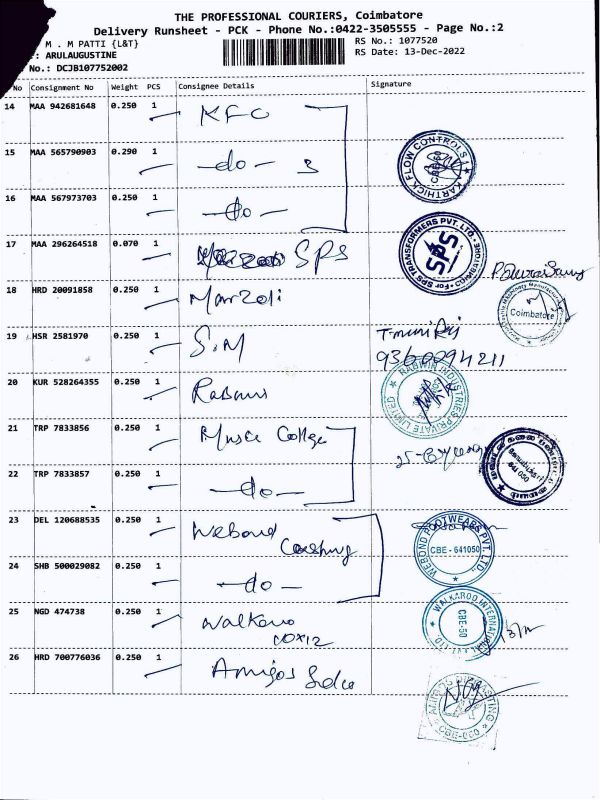 THE PROFESSIONAL COURIERS, Coimbatore
Delivery Runsheet - PCK - Phone No.:0422-3505555 - Page No.:2
M . M PATTI {L&T}
RS No.: 1077520
: ARULAUGUSTINE
RS Date: 13-Dec-2022
No.: DCJB107752002
No Consignment No Weight PCS Consignee Details Signature
14 MAA 942681648 0.250 1 KFC
15 MAA 565790903 0.290 1 -do- 3
KARTHICK FLOW CONTROLS
16 MAA 567973703 0.250 1 -do-
17 MAA 296264518 0.070 1 SPS
For SPS TRANSFORMERS PVT. LTD.
SPS
18 HRD 20091858 0.250 1 Marzoli
Coimbatore
19 HSR 2581970 0.250 1 S.M
9360294211
20 KUR 528264355 0.250 1
INDUSTRIES PRIVATE LIMITED
21 TRP 7833856 0.250 1 College
22 TRP 7833857 0.250 1 -do-
641 050
23 DEL 120688535 0.250 1 Webond
WEBOND FOOTWEARS PVT. LTD.
CBE - 641050
24 SHB 500029082 0.250 1 -do-
25 NGD 474738 0.250 1 Walkaroo
WALKAROO INTERNATIONAL PVT. LTD.
CBE-50
26 HRD 700776036 0.250 1 Amigos
CBE-050